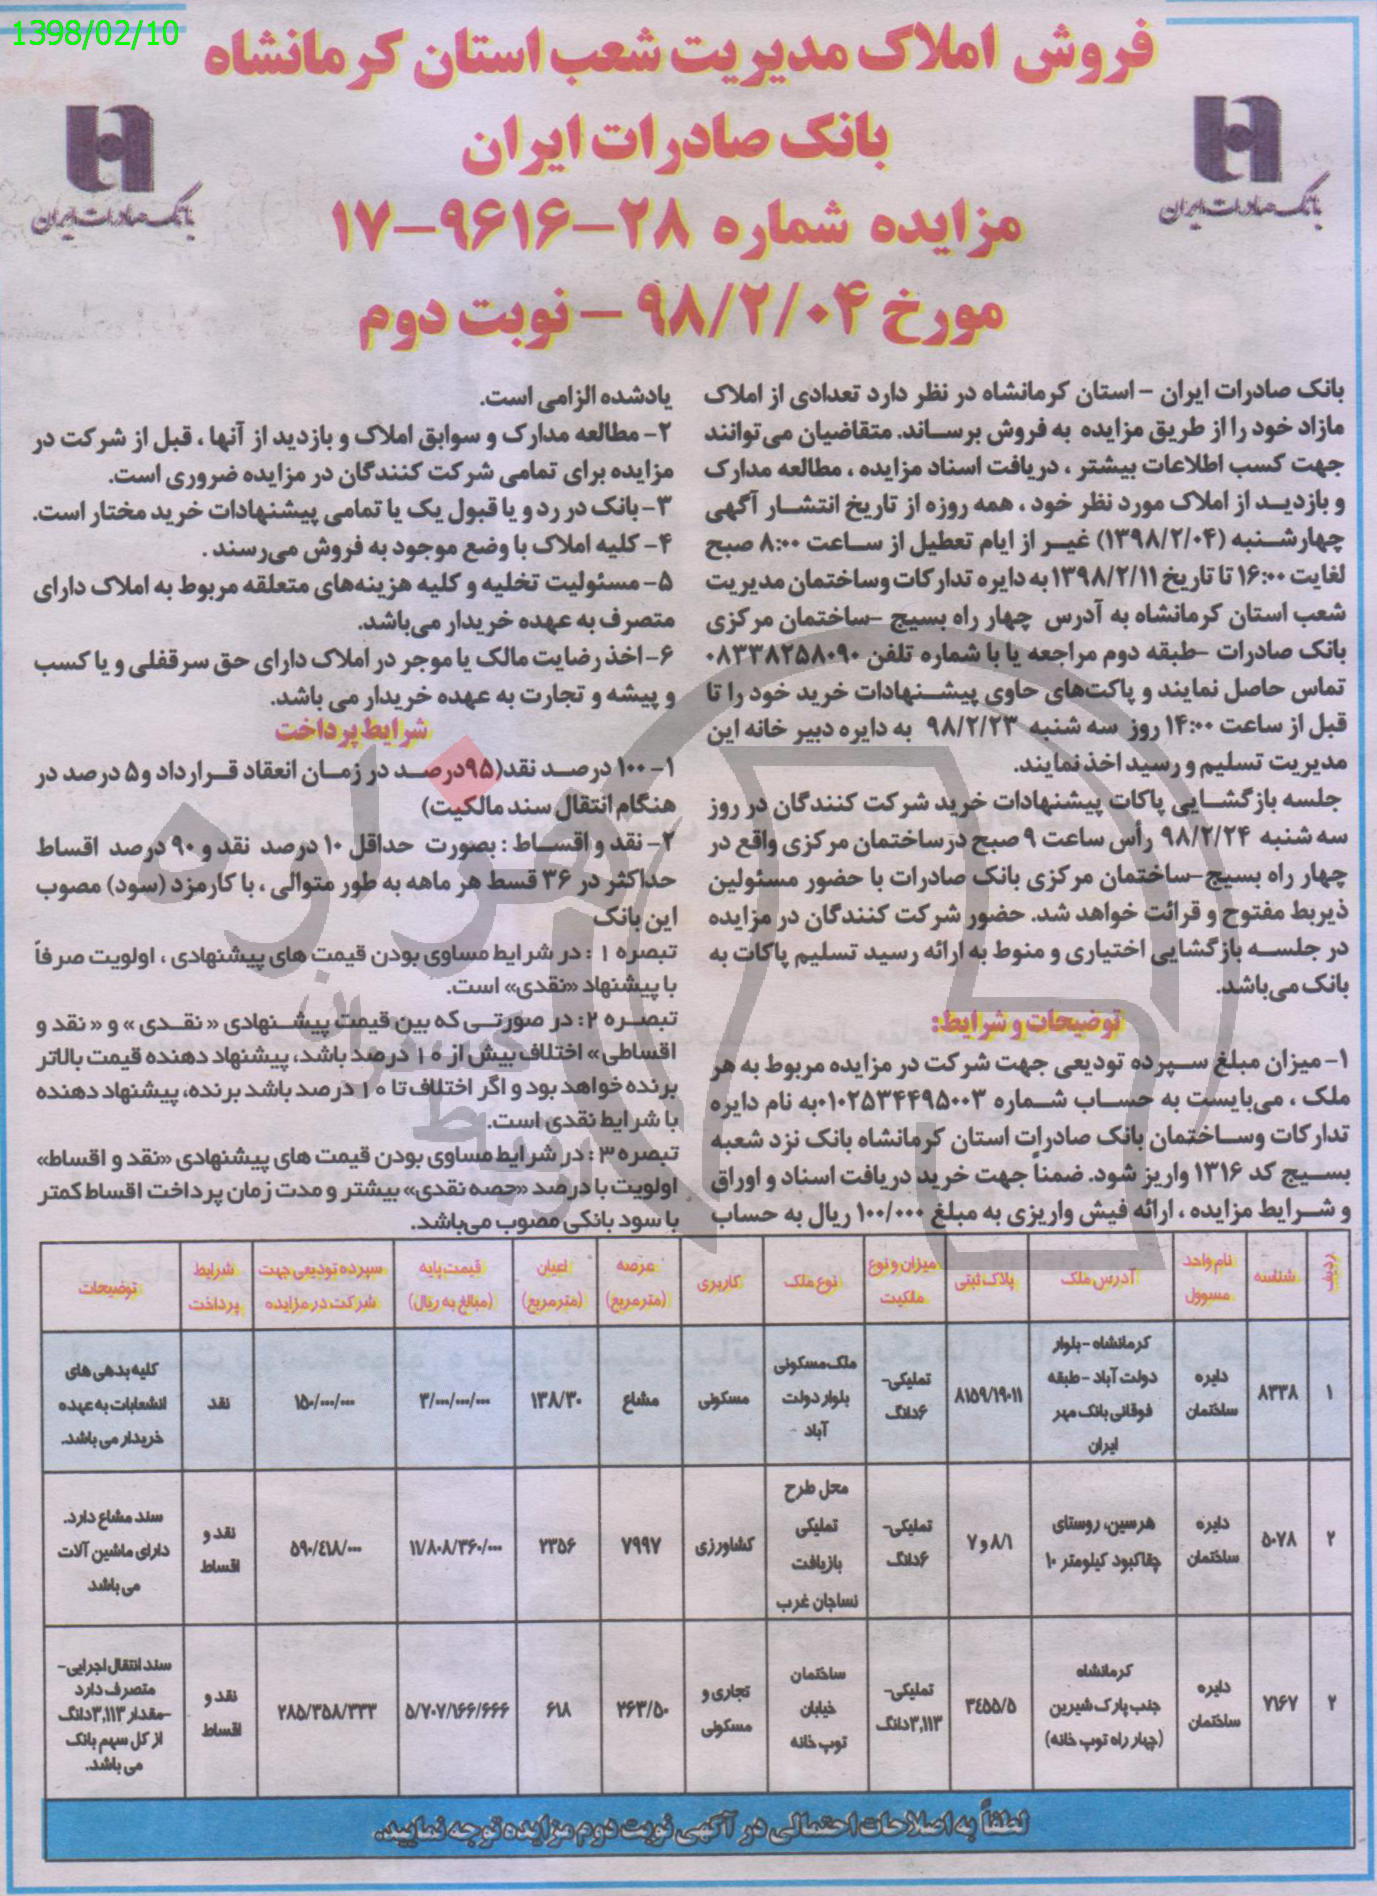 1398/02/10
فروش املاک مدیریت شعب استان کرمانشاه
بانک صادرات ایران
مزایده شماره ۲۸-۹۶۱۶-۱۷
مورخ ۹۸/۲/۰۴ - نوبت دوم
بانک صادرات ایران
بانک صادرات ایران
بانک صادرات ایران - استان کرمانشاه در نظر دارد تعدادی از املاک
مازاد خود را از طریق مزایده به فروش برساند. متقاضیان می‌توانند
جهت کسب اطلاعات بیشتر ، دریافت اسناد مزایده ، مطالعه مدارک
و بازدید از املاک مورد نظر خود ، همه روزه از تاریخ انتشار آگهی
چهارشنبه (۱۳۹۸/۲/۰۴) غیر از ایام تعطیل از ساعت ۸:۰۰ صبح
لغایت ۱۶:۰۰ تا تاریخ ۱۳۹۸/۲/۱۱ به دایره تدارکات وساختمان مدیریت
شعب استان کرمانشاه به آدرس چهار راه بسیج -ساختمان مرکزی
بانک صادرات -طبقه دوم مراجعه یا با شماره تلفن ۰۸۳۳۸۲۵۸۰۹۰
تماس حاصل نمایند و پاکت‌های حاوی پیشنهادات خرید خود را تا
قبل از ساعت ۱۴:۰۰ روز سه شنبه ۹۸/۲/۲۳ به دایره دبیر خانه این
مدیریت تسلیم و رسید اخذ نمایند.
جلسه بازگشایی پاکات پیشنهادات خرید شرکت کنندگان در روز
سه شنبه ۹۸/۲/۲۴ رأس ساعت ۹ صبح درساختمان مرکزی واقع در
چهار راه بسیج-ساختمان مرکزی بانک صادرات با حضور مسئولین
ذیربط مفتوح و قرائت خواهد شد. حضور شرکت کنندگان در مزایده
در جلسه بازگشایی اختیاری و منوط به ارائه رسید تسلیم پاکات به
بانک می‌باشد.
توضیحات و شرایط:
۱- میزان مبلغ سپرده تودیعی جهت شرکت در مزایده مربوط به هر
ملک ، می‌بایست به حساب شماره ۰۱۰۲۵۳۴۴۹۵۰۰۳به نام دایره
تدارکات وساختمان بانک صادرات استان کرمانشاه بانک نزد شعبه
بسیج کد ۱۳۱۶ واریز شود. ضمناً جهت خرید دریافت اسناد و اوراق
و شرایط مزایده ، ارائه فیش واریزی به مبلغ ۱۰۰/۰۰۰ ریال به حساب
یادشده الزامی است.
۲- مطالعه مدارک و سوابق املاک و بازدید از آنها ، قبل از شرکت در
مزایده برای تمامی شرکت کنندگان در مزایده ضروری است.
۳- بانک در رد و یا قبول یک یا تمامی پیشنهادات خرید مختار است.
۴- کلیه املاک با وضع موجود به فروش می‌رسند .
۵- مسئولیت تخلیه و کلیه هزینه‌های متعلقه مربوط به املاک دارای
متصرف به عهده خریدار می‌باشد.
۶- اخذ رضایت مالک یا موجر در املاک دارای حق سرقفلی و یا کسب
و پیشه و تجارت به عهده خریدار می باشد.
شرایط پرداخت
۱- ۱۰۰ درصد نقد(۹۵درصد در زمان انعقاد قرارداد و۵ درصد در
هنگام انتقال سند مالکیت)
۲- نقد و اقساط : بصورت حداقل ۱۰ درصد نقد و ۹۰ درصد اقساط
حداکثر در ۳۶ قسط هر ماهه به طور متوالی ، با کارمزد (سود) مصوب
این بانک
تبصره ۱ : در شرایط مساوی بودن قیمت های پیشنهادی ، اولویت صرفاً
با پیشنهاد «نقدی» است.
تبصره ۲: در صورتی که بین قیمت پیشنهادی « نقدی » و « نقد و
اقساطی» اختلاف بیش از ۱۰ درصد باشد، پیشنهاد دهنده قیمت بالاتر
برنده خواهد بود و اگر اختلاف تا ۱۰ درصد باشد برنده، پیشنهاد دهنده
با شرایط نقدی است.
تبصره ۳: در شرایط مساوی بودن قیمت های پیشنهادی «نقد و اقساط»
اولویت با درصد «حصه نقدی» بیشتر و مدت زمان پرداخت اقساط کمتر
با سود بانکی مصوب می‌باشد.
ردیف شناسه نام واحد مسوول آدرس ملک پلاک ثبتی میزان و نوع مالکیت نوع ملک کاربری عرصه (مترمربع) اعیان (مترمربع) قیمت پایه (مبالغ به ریال) سپرده تودیعی جهت شرکت در مزایده شرایط پرداخت توضیحات
۱ ۸۳۳۸ دایره ساختمان کرمانشاه -بلوار دولت آباد -طبقه فوقانی بانک مهر ایران ۸۱۵۹/۱۹۰۱۱ تملیکی-۶دانگ ملک مسکونی بلوار دولت آباد مسکونی مشاع ۱۳۸/۳۰ ۳/۰۰۰/۰۰۰/۰۰۰ ۱۵۰/۰۰۰/۰۰۰ نقد کلیه بدهی های انشعابات به عهده خریدار می باشد.
۲ ۵۰۷۸ دایره ساختمان هرسین، روستای چقاکبود کیلومتر ۱۰ ۸/۱و ۷ تملیکی-۶دانگ محل طرح تملیکی بازیافت نساجان غرب کشاورزی ۷۹۹۷ ۲۳۵۶ ۱۱/۸۰۸/۳۶۰/۰۰۰ ۵۹۰/۴۱۸/۰۰۰ نقد و اقساط سند مشاع دارد. دارای ماشین آلات می باشد
۲ ۷۱۶۷ دایره ساختمان کرمانشاه جنب پارک شیرین (چهار راه توپ خانه) ۳۴۵۵/۵ تملیکی-۳,۱۱۳دانگ ساختمان خیابان توپ خانه تجاری و مسکونی ۲۶۳/۵۰ ۶۱۸ ۵/۷۰۷/۱۶۶/۶۶۶ ۲۸۵/۳۵۸/۳۳۳ نقد و اقساط سند انتقال اجرایی-متصرف دارد -مقدار ۳,۱۱۳دانگ از کل سهم بانک می باشد.
لطفاً به اصلاحات احتمالی در آگهی نوبت دوم مزایده توجه نمایید.